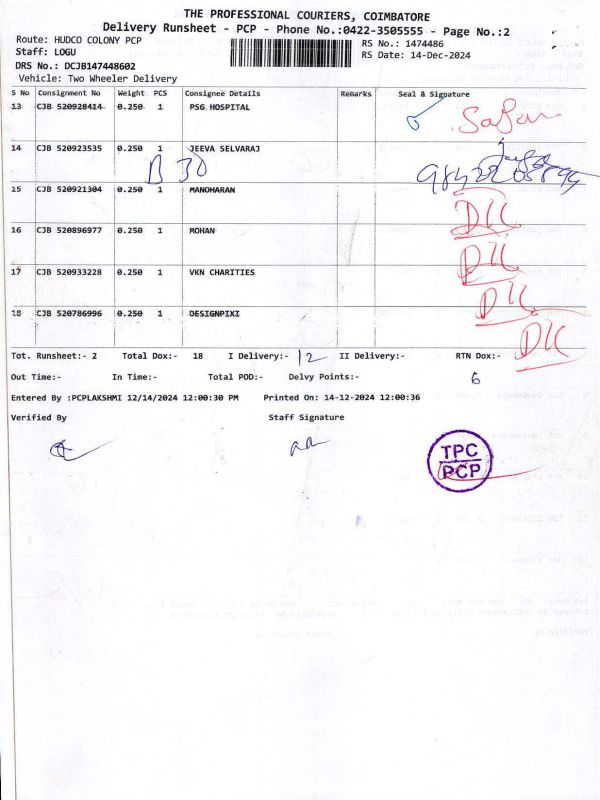 THE PROFESSIONAL COURIERS, COIMBATORE
Delivery Runsheet - PCP - Phone No.:0422-3505555 - Page No.:2
Route: HUDCO COLONY PCP RS No.: 1474486
Staff: LOGU RS Date: 14-Dec-2024
DRS No.: DCJB147448602
Vehicle: Two Wheeler Delivery
S No Consignment No Weight PCS Consignee Details Remarks Seal & Signature
13 CJB 520928414 0.250 1 PSG HOSPITAL
14 CJB 520923535 0.250 1 JEEVA SELVARAJ
B 30
15 CJB 520921304 0.250 1 MANOHARAN
DIL
16 CJB 520896977 0.250 1 MOHAN
DIL
17 CJB 520933228 0.250 1 VKN CHARITIES
DIL
18 CJB 520786996 0.250 1 DESIGNPIXI
DIL
Tot. Runsheet:- 2 Total Dox:- 18 I Delivery:- 12 II Delivery:- RTN Dox:-
Out Time:- In Time:- Total POD:- Delvy Points:- 6
Entered By :PCPLAKSHMI 12/14/2024 12:00:30 PM Printed On: 14-12-2024 12:00:36
Verified By Staff Signature
TPC
PCP